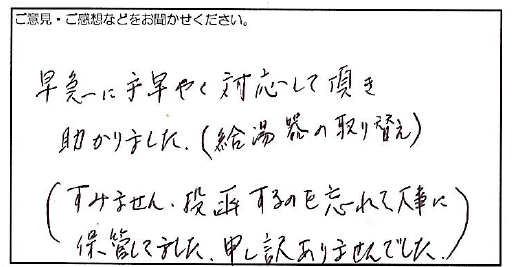 ご意見・ご感想などをお聞かせください。
早急に手早やく対応して頂き
助かりました.(給湯器の取り替え)
(すみません.投函するのを忘れて大事に
保管してました.申し訳ありませんでした.)